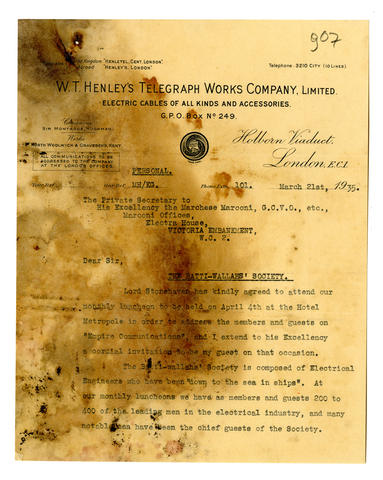 907
Kingdom "HENLETEL, CENT, LONDON"
"HENLEYS, LONDON"
Telephone: 3210 CITY (10 LINES)
W. T. HENLEY'S TELEGRAPH WORKS COMPANY, LIMITED.
ELECTRIC CABLES OF ALL KINDS AND ACCESSORIES.
G.P.O. BOX Nº 249.
Chairman
SIR MONTAGUE HUGHMAN.
Works
NORTH WOOLWICH & GRAVESEND, KENT.
ALL COMMUNICATIONS TO BE
ADDRESSED TO THE COMPANY
AT THE LONDON OFFICES.
Holborn Viaduct,
London, E.C.1
PERSONAL.
MH/EG. 101. March 21st, 1935.
The Private Secretary to
His Excellency the Marchese Marconi, G.C.V.O., etc.,
Marconi Offices,
Electra House,
VICTORIA EMBANKMENT,
W.C. 2.
Dear Sir,
THE BATTI-WALLAHS' SOCIETY.
Lord Stonehaven has kindly agreed to attend our
monthly luncheon to be held on April 4th at the Hotel
Metropole in order to address the members and guests on
"Empire Communications", and I extend to his Excellency
a cordial invitation to be my guest on that occasion.
The Batti-wallahs' Society is composed of Electrical
Engineers who have been "down to the sea in ships". At
our monthly luncheons we have as members and guests 200 to
400 of the leading men in the electrical industry, and many
notable men have been the chief guests of the Society.